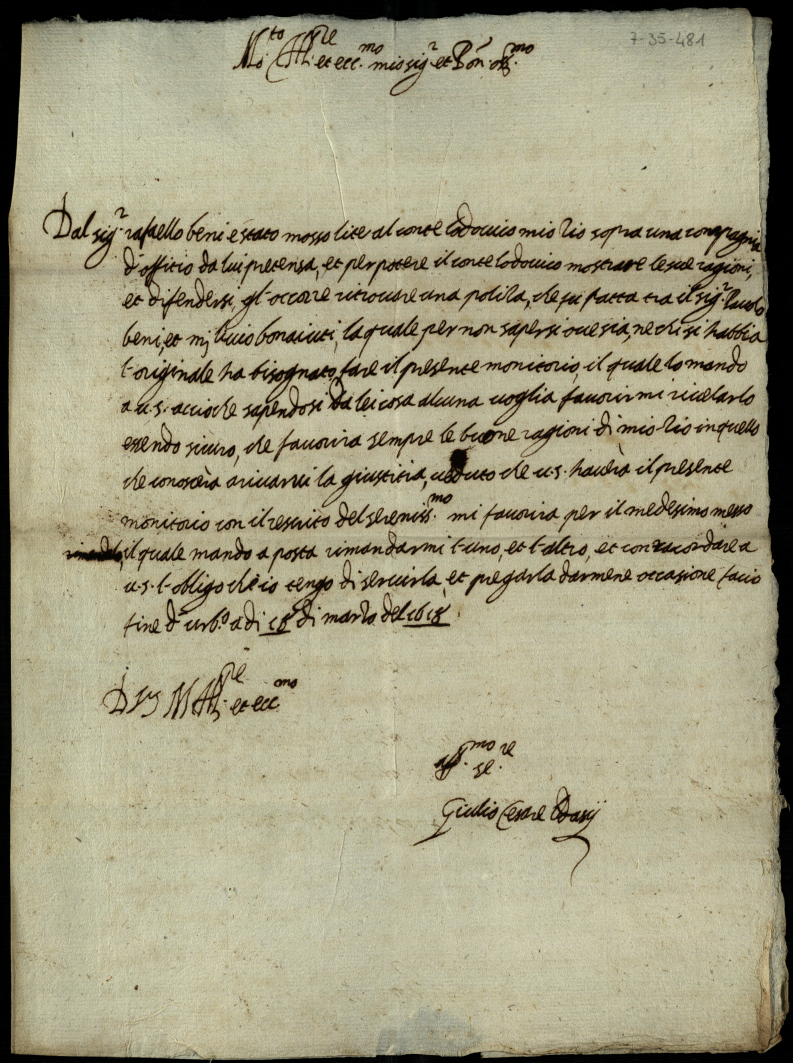 7-35-481
M.to Ill.re et ecc.mo mio sig.r et Pron. oss.mo
Dal sig.r rafaello beni è stato mosso lite al conte lodouico mio Zio sopra una compagnia
d'offitio da lui pretensa, et per potere il conte lodouico mostrare le sue ragioni,
et difendersi, gl'occorre ritrouare una poliza, che fu fatta tra il sig.r Paulo
beni, et m. liuio bonaiuti, la quale per non sapersi oue sia, ne chi si habbia
l'originale ha bisognato fare il presente monitorio, il quale lo mando
a u.s. accioche sapendosi da lei cosa alcuna uoglia fauorirmi riuelarlo
essendo sicuro, che fauorira sempre le buone ragioni di mio Zio in quello
che conoscerà ariuarui la giustitia, ueduto che u.s. hauerà il presente
monitorio con il rescrito del sereniss.mo mi fauorira per il medesimo messo
il quale mando a posta rimandarmi l'uno, et l'altro, et con racordare a
u.s. l'obligo ch'io tengo di seruirla, et pregarla darmene occasione facio
fine d'urb.o a di 18 di marzo del 1618
D V S M Ill.re et ecc.mo
aff.mo se.re
Giulio Cesare